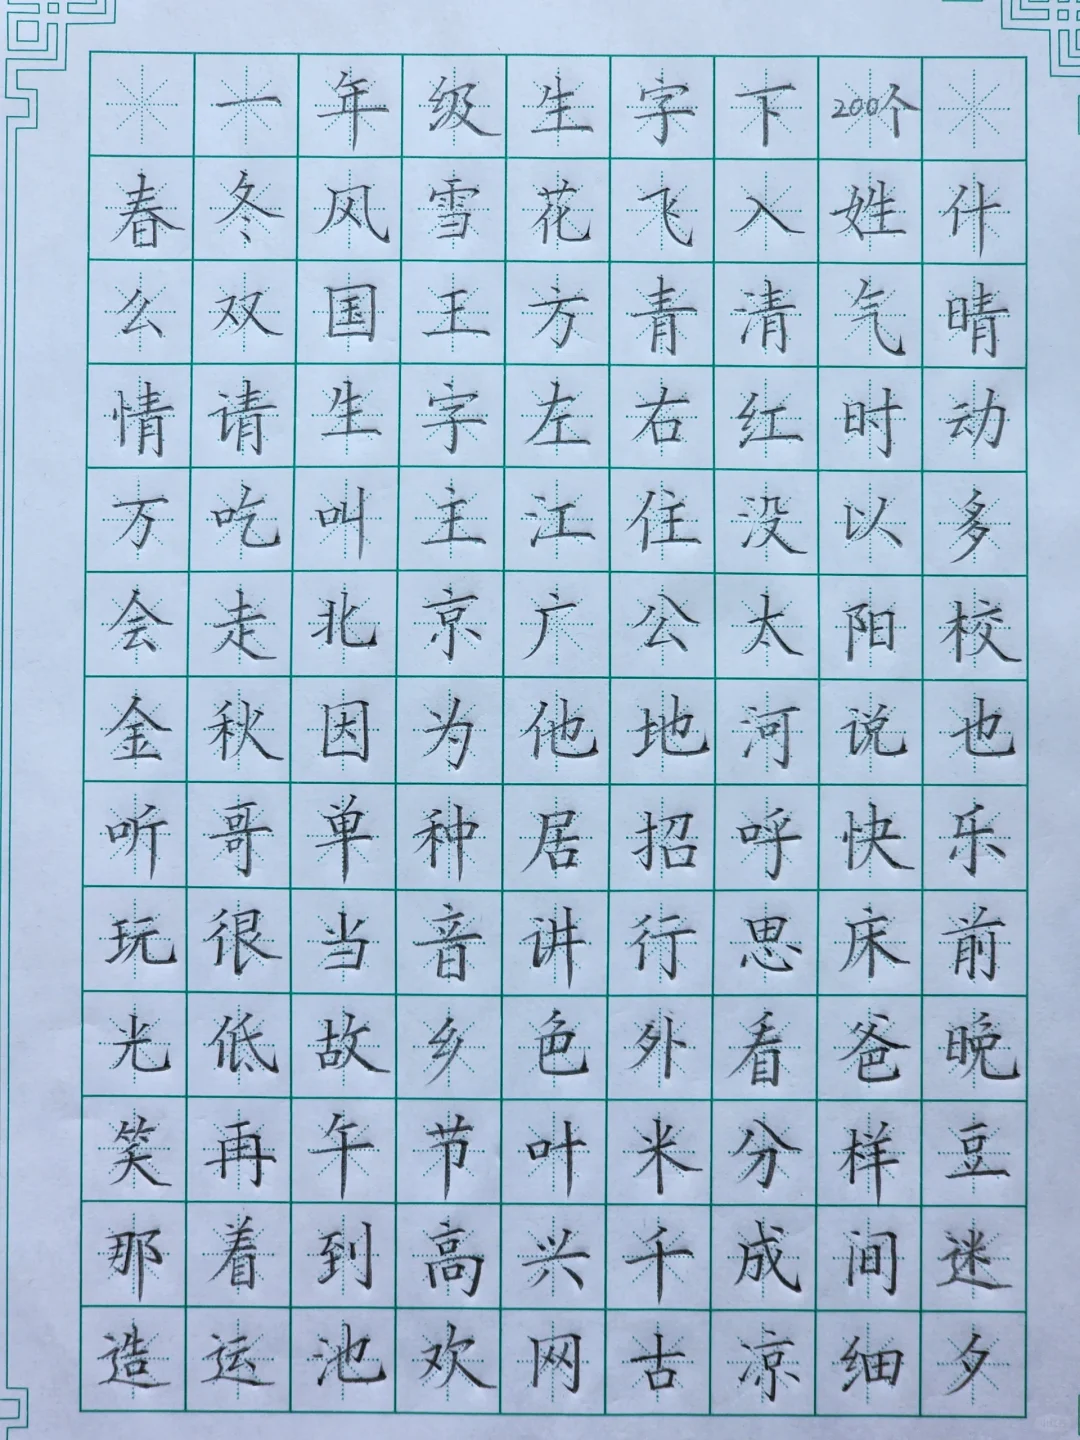 一年级生字下200个
春冬风雪花飞入姓什
么双国王方青清气晴
情请生字左右红时动
万吃叫主江住没以多
会走北京广公太阳校
金秋因为他地河说也
听哥单种居招呼快乐
玩很当音讲行思床前
光低故乡色外看爸晚
笑再午节叶米分样豆
那着到高兴千成间迷
造运池欢网古凉细夕